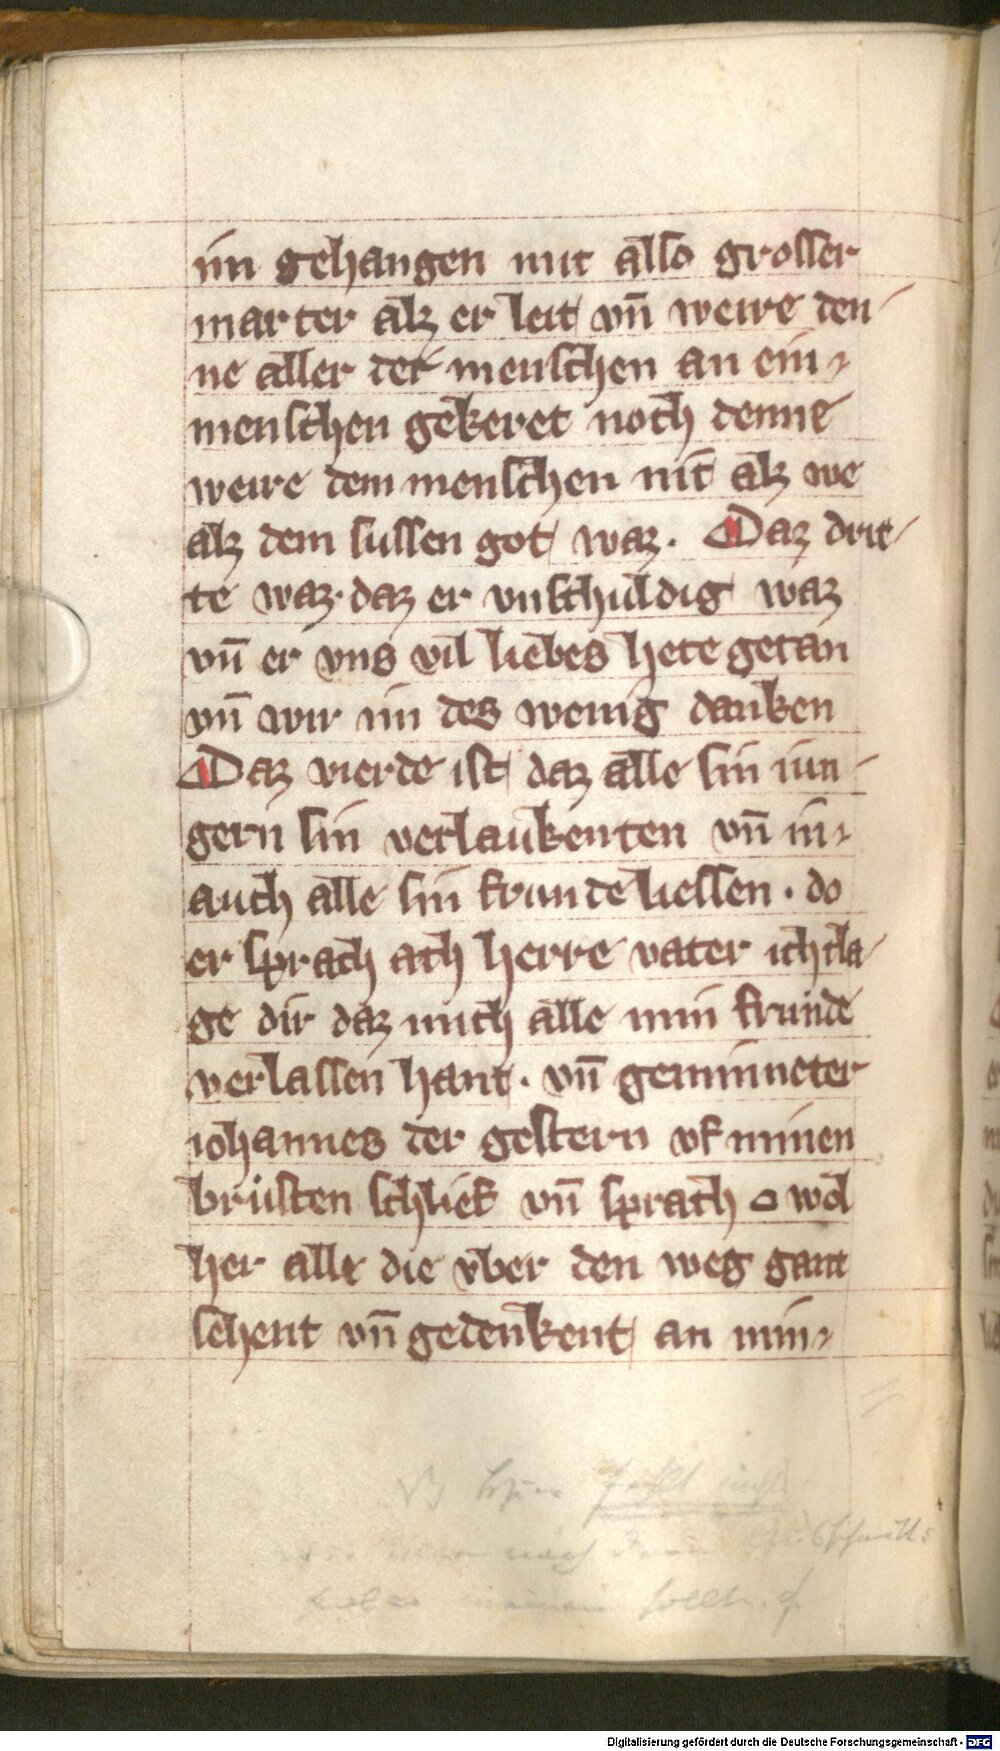 im gehangen mit also grosser
marter alz er leit vn̄ weire den/
ne aller der menschen an ein
menschen gekeret noch denne
weire dem menschen nit alz we
alz dem sussen got waz. Daz drit/
te waz. daz er vnschuldig waz
vn̄ er vns vil liebes hete getan
vn̄ wir im des wenig danken
Daz vierde ist daz alle sin iun/
gern sin verlaukenten vn̄ in
auch alle sin frunde liessen. do
er sprach ach herre vater ich cla/
ge dir daz mich alle min frunde
verlassen hant. vn̄ geminneter
iohannes der gestern vf minen
brüsten schlief vn̄ sprach o wol
her alle die v̈ber den weg gant
sehent vn̄ gedenkent an min
fehlt nichts
nach
Digitalisierung gefördert durch die Deutsche Forschungsgemeinschaft - DFG